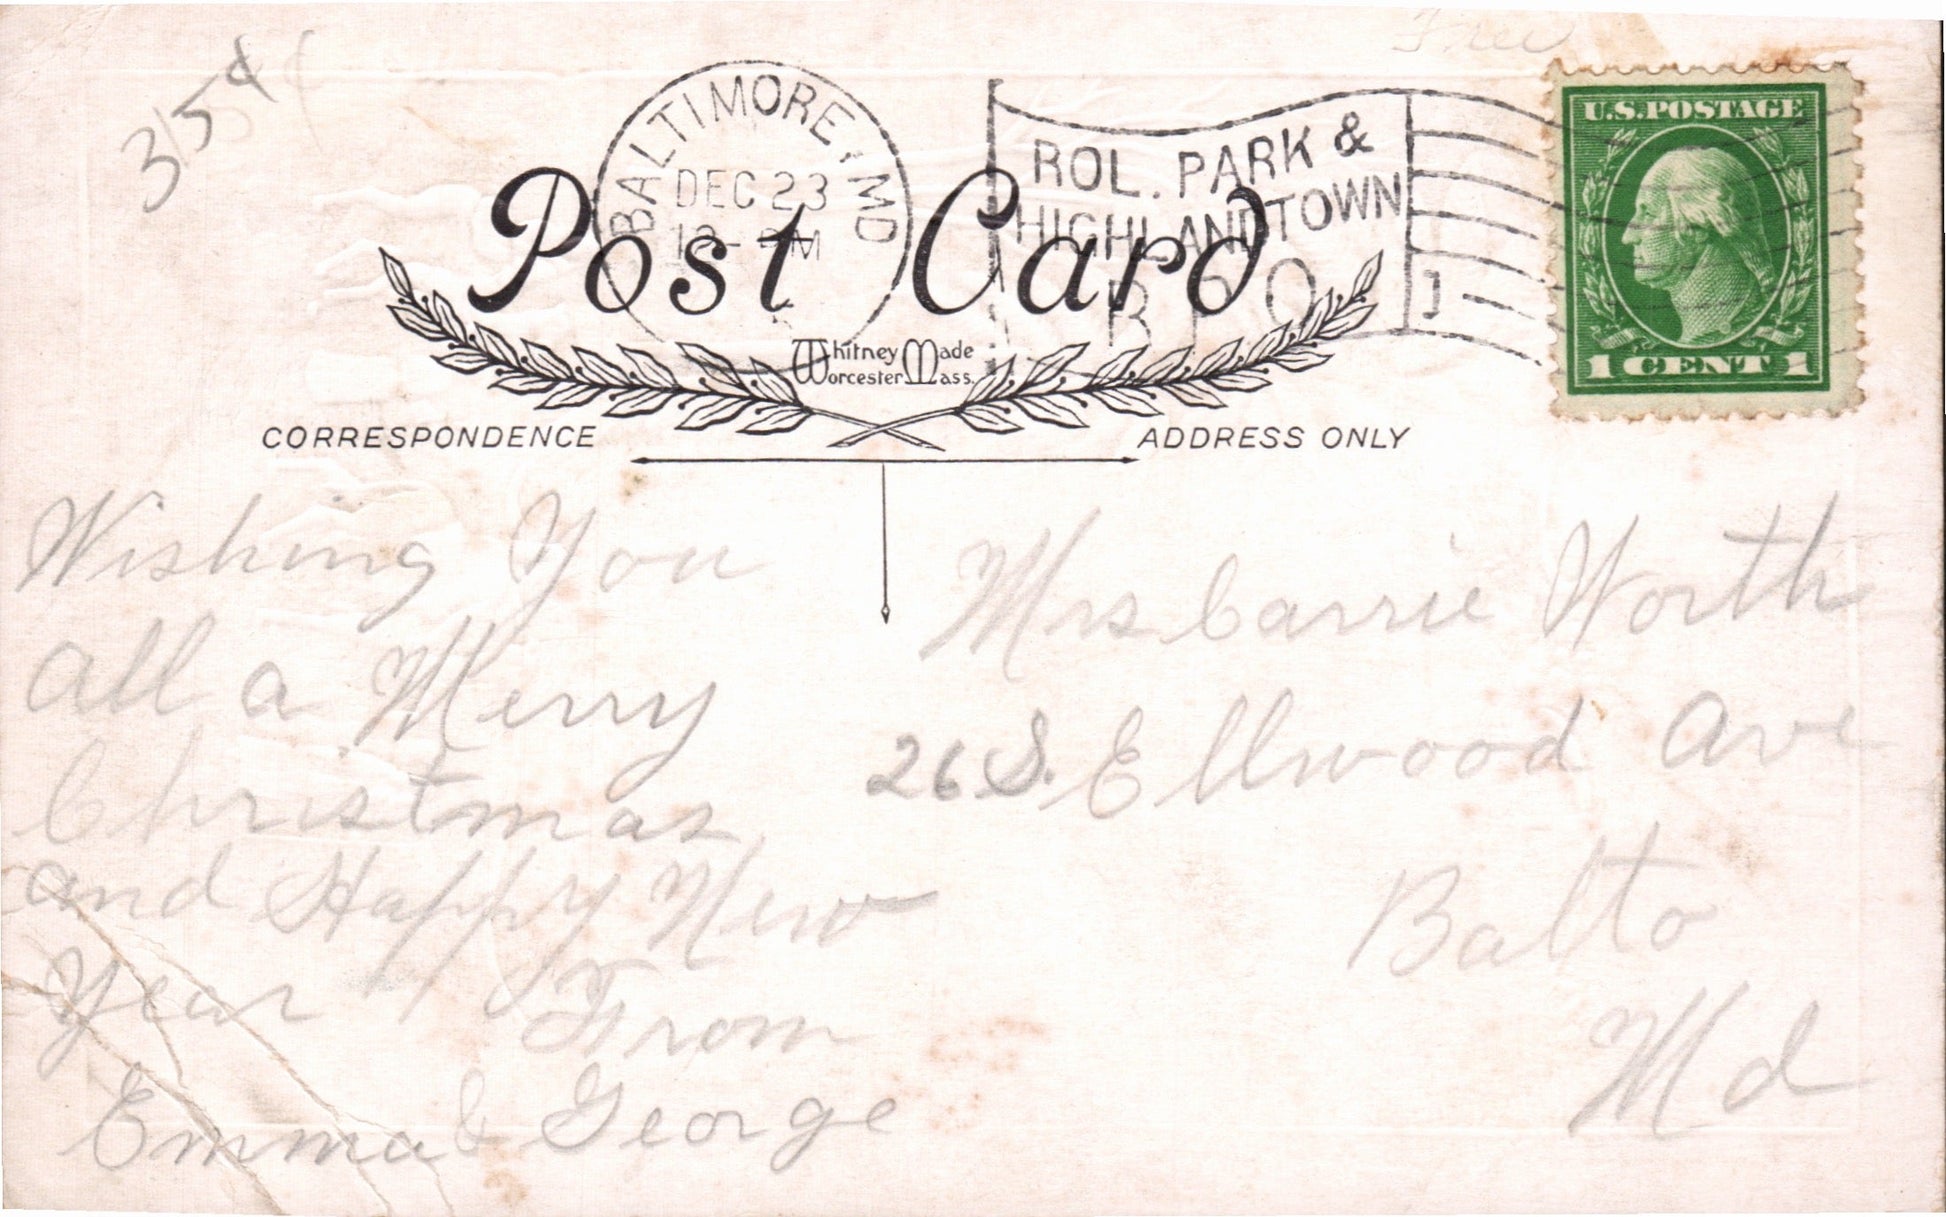 3/5¢
BALTIMORE, MD
DEC 23
ROL. PARK &
HIGHLANDTOWN
U.S. POSTAGE
1 CENT 1
Post Card
Whitney Made
Worcester Mass.
CORRESPONDENCE
ADDRESS ONLY
Wishing You
all a Merry
Christmas
and Happy New
Year From
Emma & George
Mrs Carrie Worth
26 S. Ellwood Ave
Balto
Md